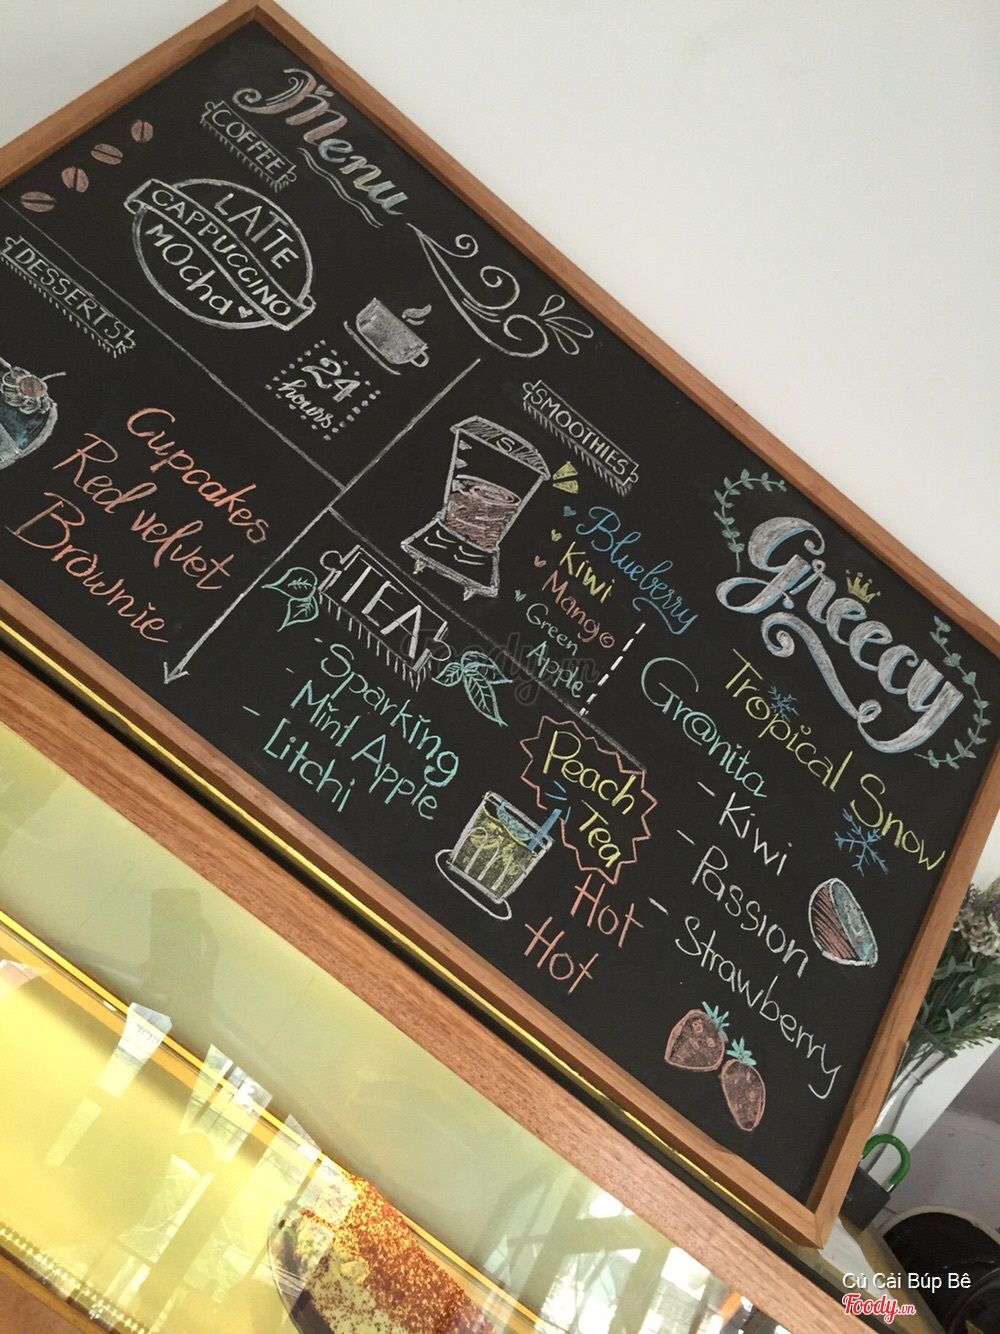 Menu
COFFEE
LATTE
CAPPUCCINO
MOcha
24
hours
DESSERTS
Cupcakes
Red velvet
Brownie
SMOOTHIES
S
Blueberry
Kiwi
Mango
Green
Apple
TEA
- Sparking
- Mint Apple
- Litchi
Peach
Tea
Hot
Hot
Greecy
Tropical Snow
Gr@nita
- Kiwi
- Passion
- Strawberry
Foody.vn
Củ Cải Búp Bê
Foody.vn